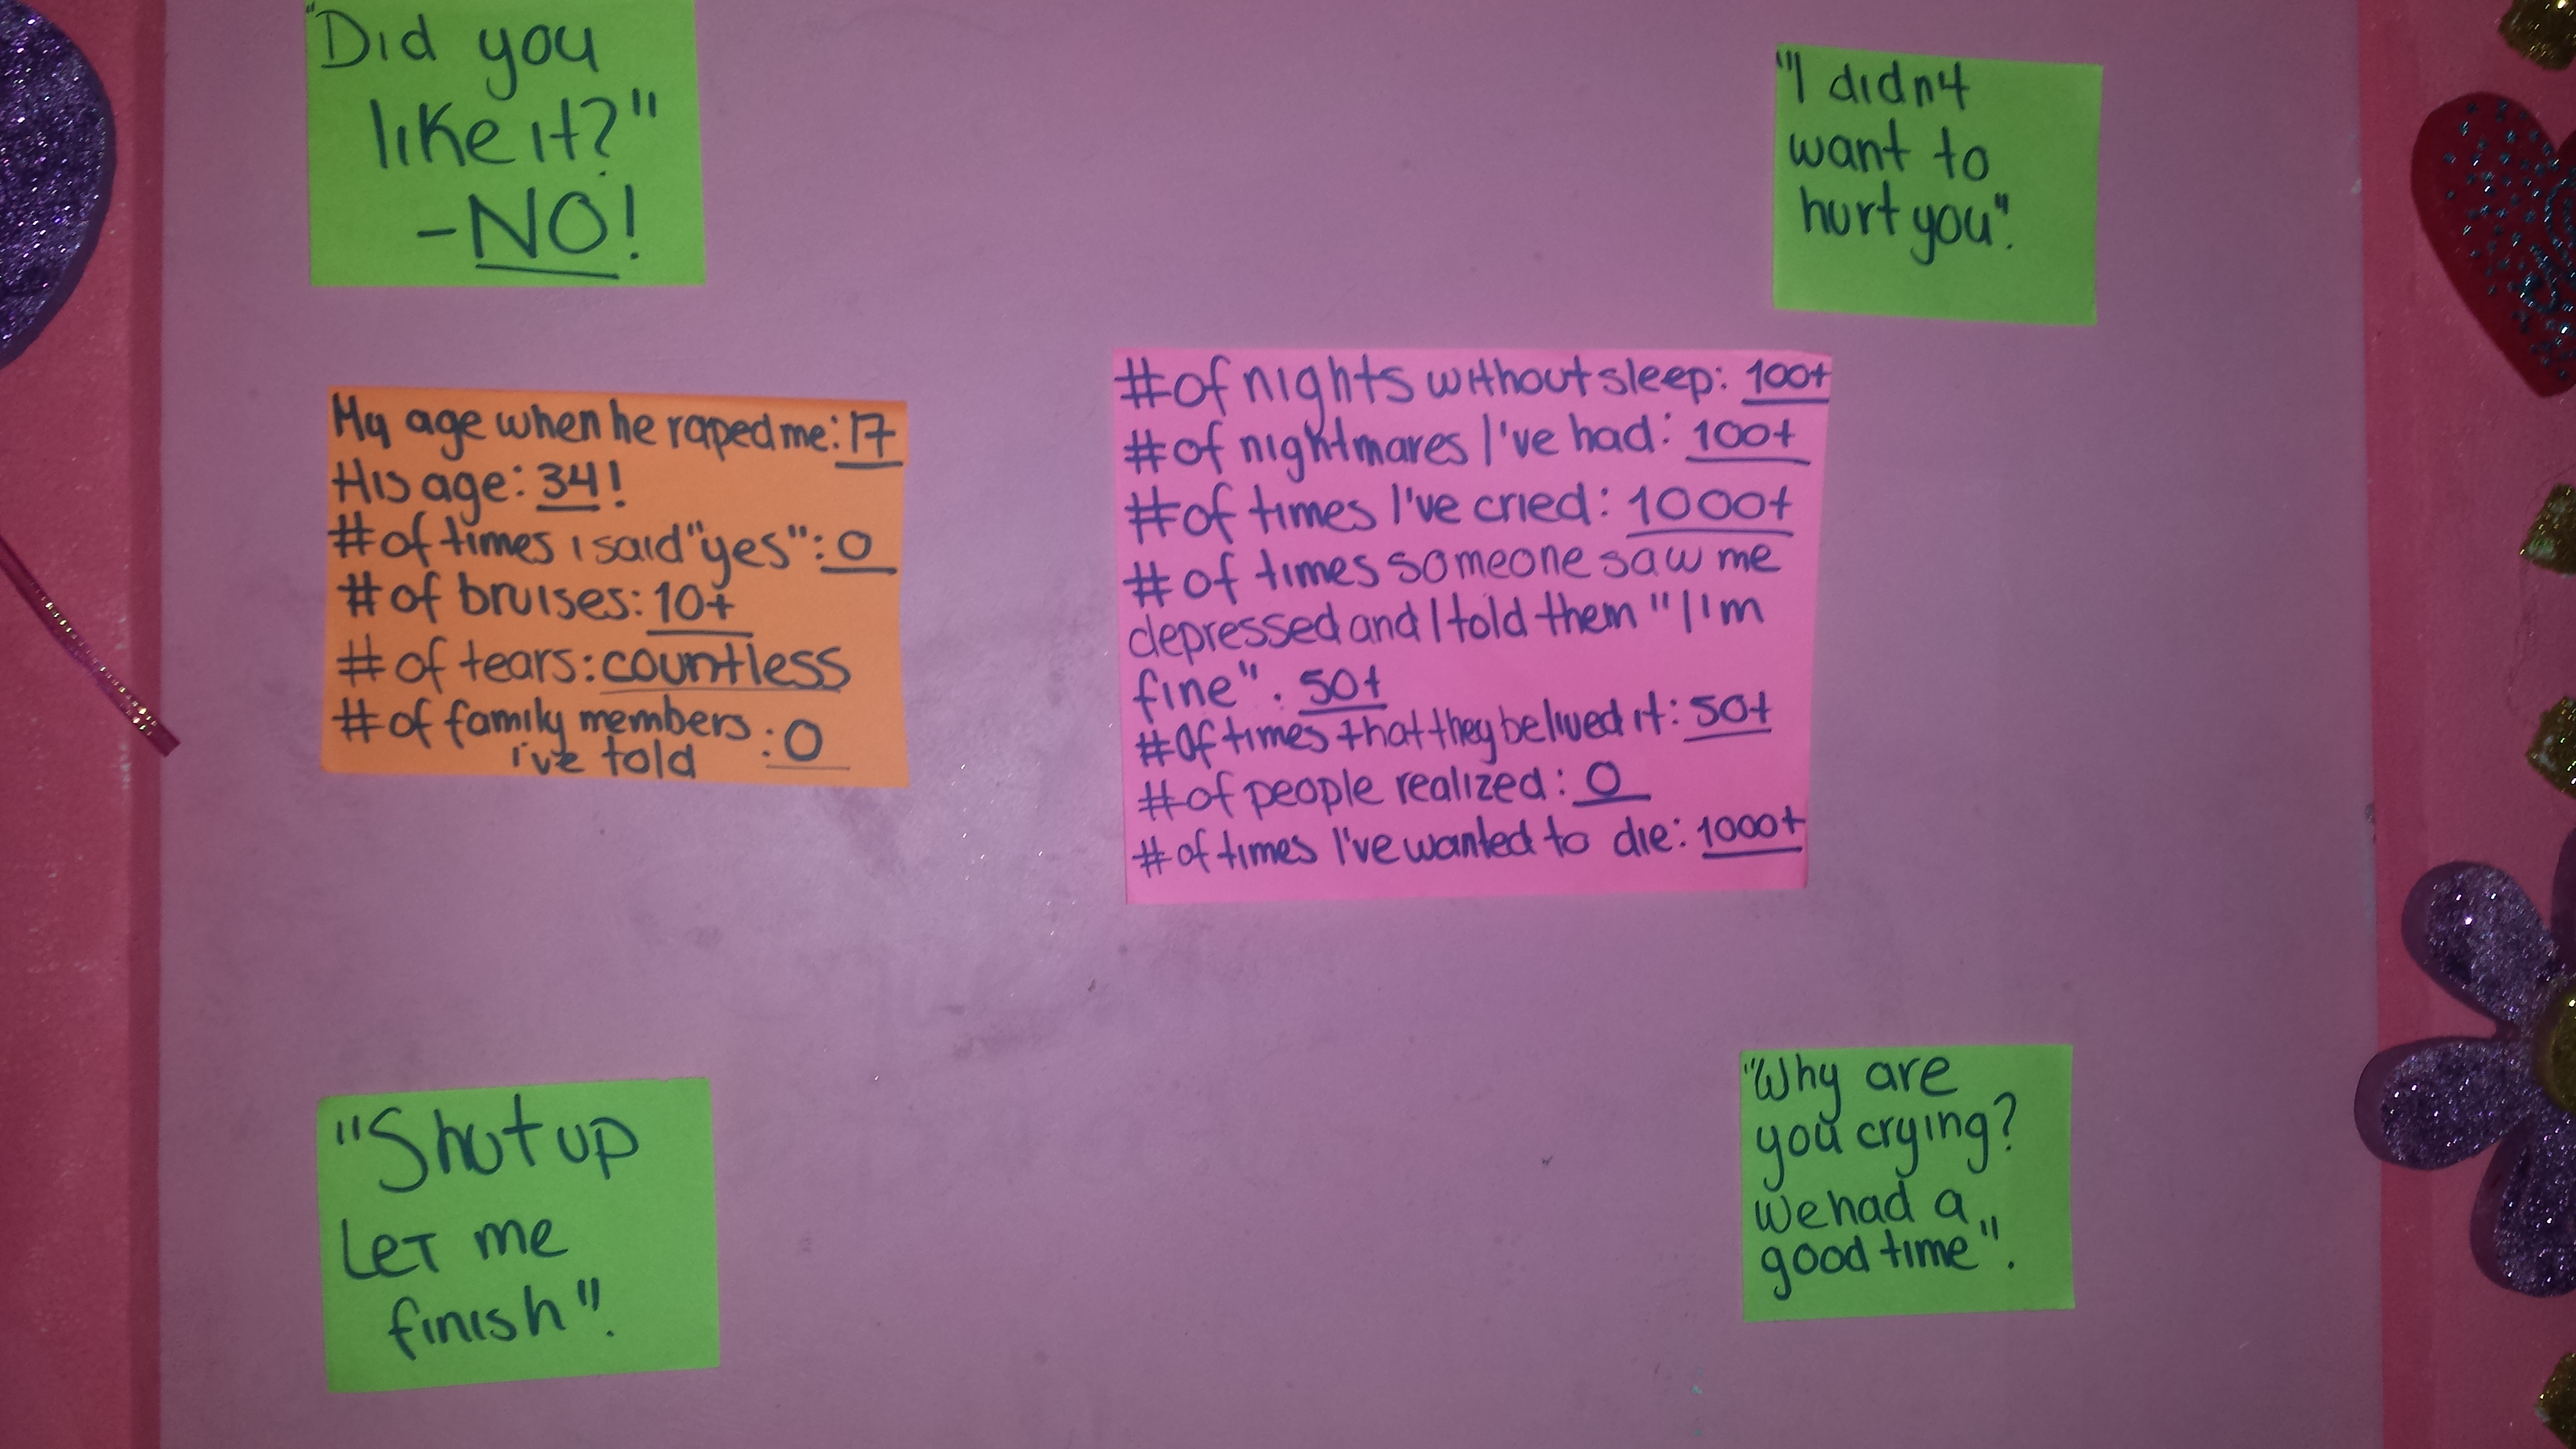 "Did you
like it?"
-NO!
"I didnt
want to
hurt you".
My age when he raped me: 17
His age: 34!
# of times i said "yes": 0
# of bruises: 10+
# of tears: countless
# of family members : 0
i've told
# of nights without sleep: 100+
# of nightmares I've had: 100+
# of times I've cried: 1000+
# of times someone saw me
depressed and I told them "I'm
fine". 50+
# Of times that they belived it: 50+
# of people realized: 0
# of times I've wanted to die: 1000+
"Shut up
Let me
finish".
"Why are
you crying?
We had a
good time".